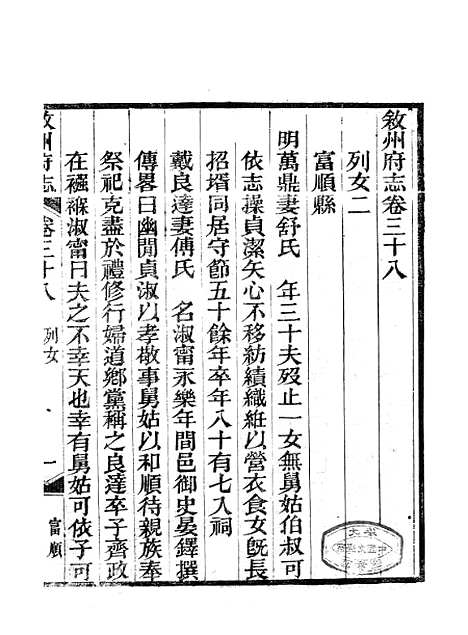 敘州府志卷三十八
列女二
富順縣
明萬鼎妻舒氏　年三十夫歿止一女無舅姑伯叔可
依志操貞潔矢心不移紡績織絍以營衣食女既長
招壻同居守節五十餘年卒年八十有七入祠
戴良達妻傅氏　名淑甯永樂年間邑御史晏鐸撰
傳畧曰幽閒貞淑以孝敬事舅姑以和順待親族奉
祭祀克盡於禮修行婦道鄉黨稱之良達卒子齊政
在襁褓淑甯曰夫之不幸天也幸有舅姑可依子可
敘州府志
卷三十八
列女
一
富順